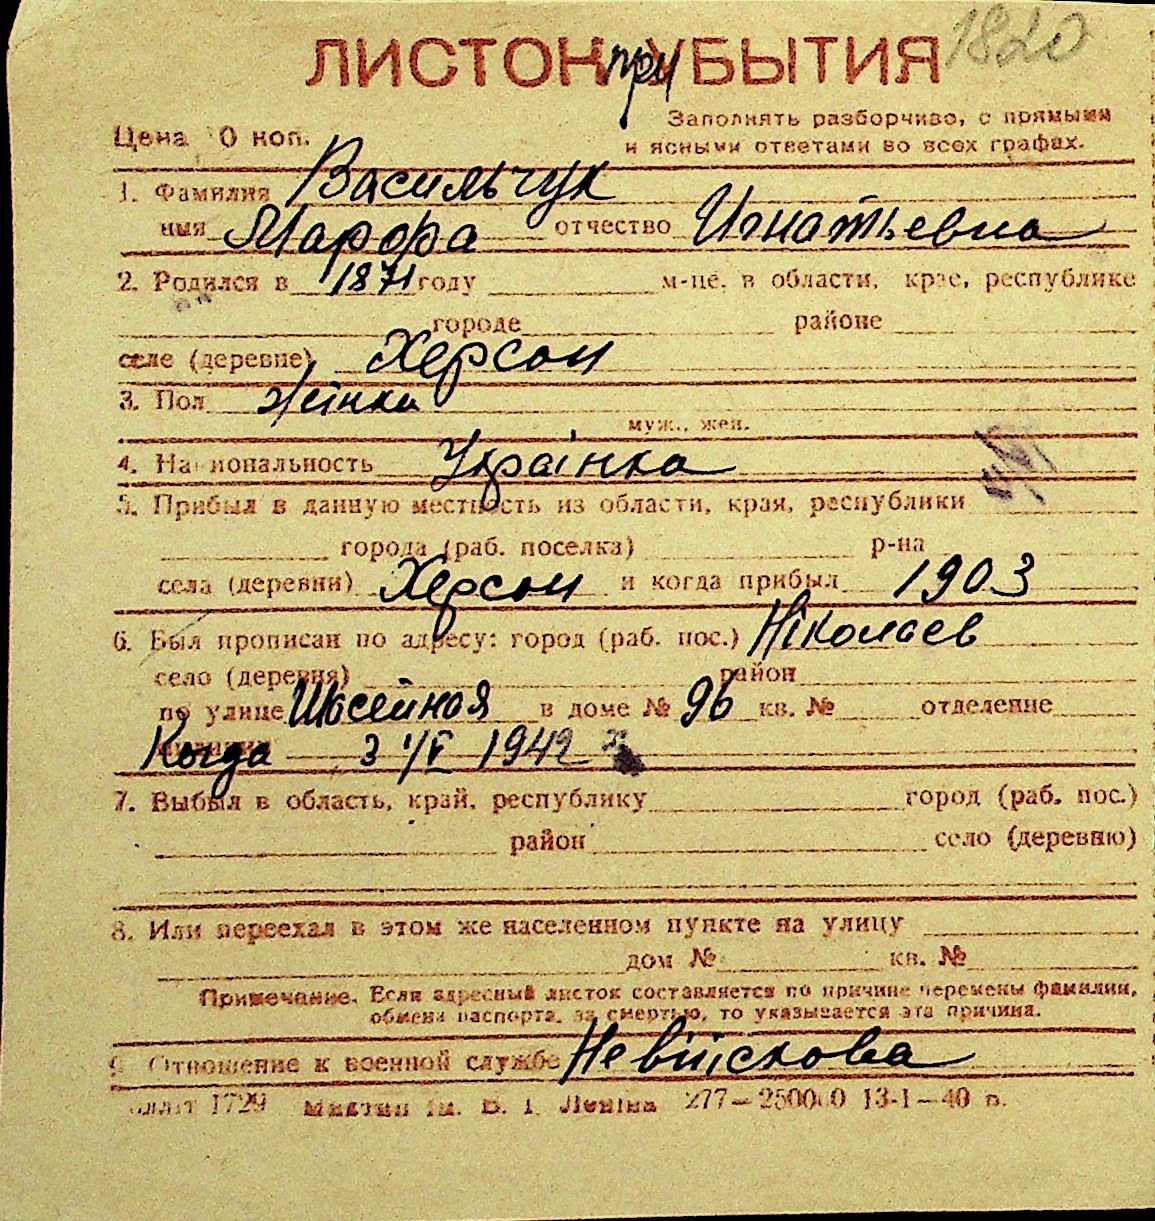 1820
ЛИСТОК при УБЫТИЯ
Заполнять разборчиво, с прямыми
Цена 0 коп. и ясными ответами во всех графах.
1. Фамилия Васильчук
имя Марфа отчество Игнатьевна
2. Родился в 1871 году м-це, в области, крае, республике
городе районе
селе (деревне) Херсон
3. Пол жінка
муж., жен.
4. Национальность Українка
5. Прибыл в данную местность из области, края, республики
города (раб. поселка) р-на
села (деревни) Херсон и когда прибыл 1903
6. Был прописан по адресу: город (раб. пос.) Ніколаев
село (деревня) район
по улице Шосейная в доме № 96 кв. № отделение
милиции Когда 3 IV 1942
7. Выбыл в область, край, республику город (раб. пос.)
район село (деревню)
8. Или переехал в этом же населенном пункте на улицу
дом № кв. №
Примечание. Если адресный листок составляется по причине перемены фамилии,
обмена паспорта, за смертью, то указывается эта причина.
9. Отношение к военной службе Невійскова
1729 ім. В. І. Леніна 277—250000 13-I—40 р.